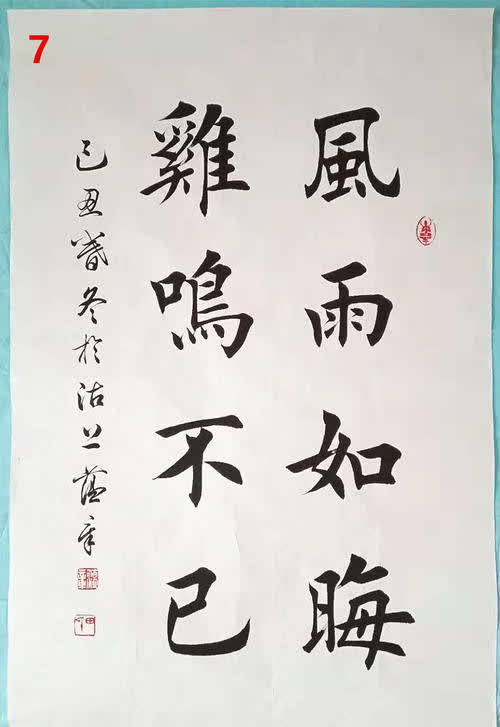 7
風雨如晦
雞鳴不已
己丑暮冬於沽上蘊章